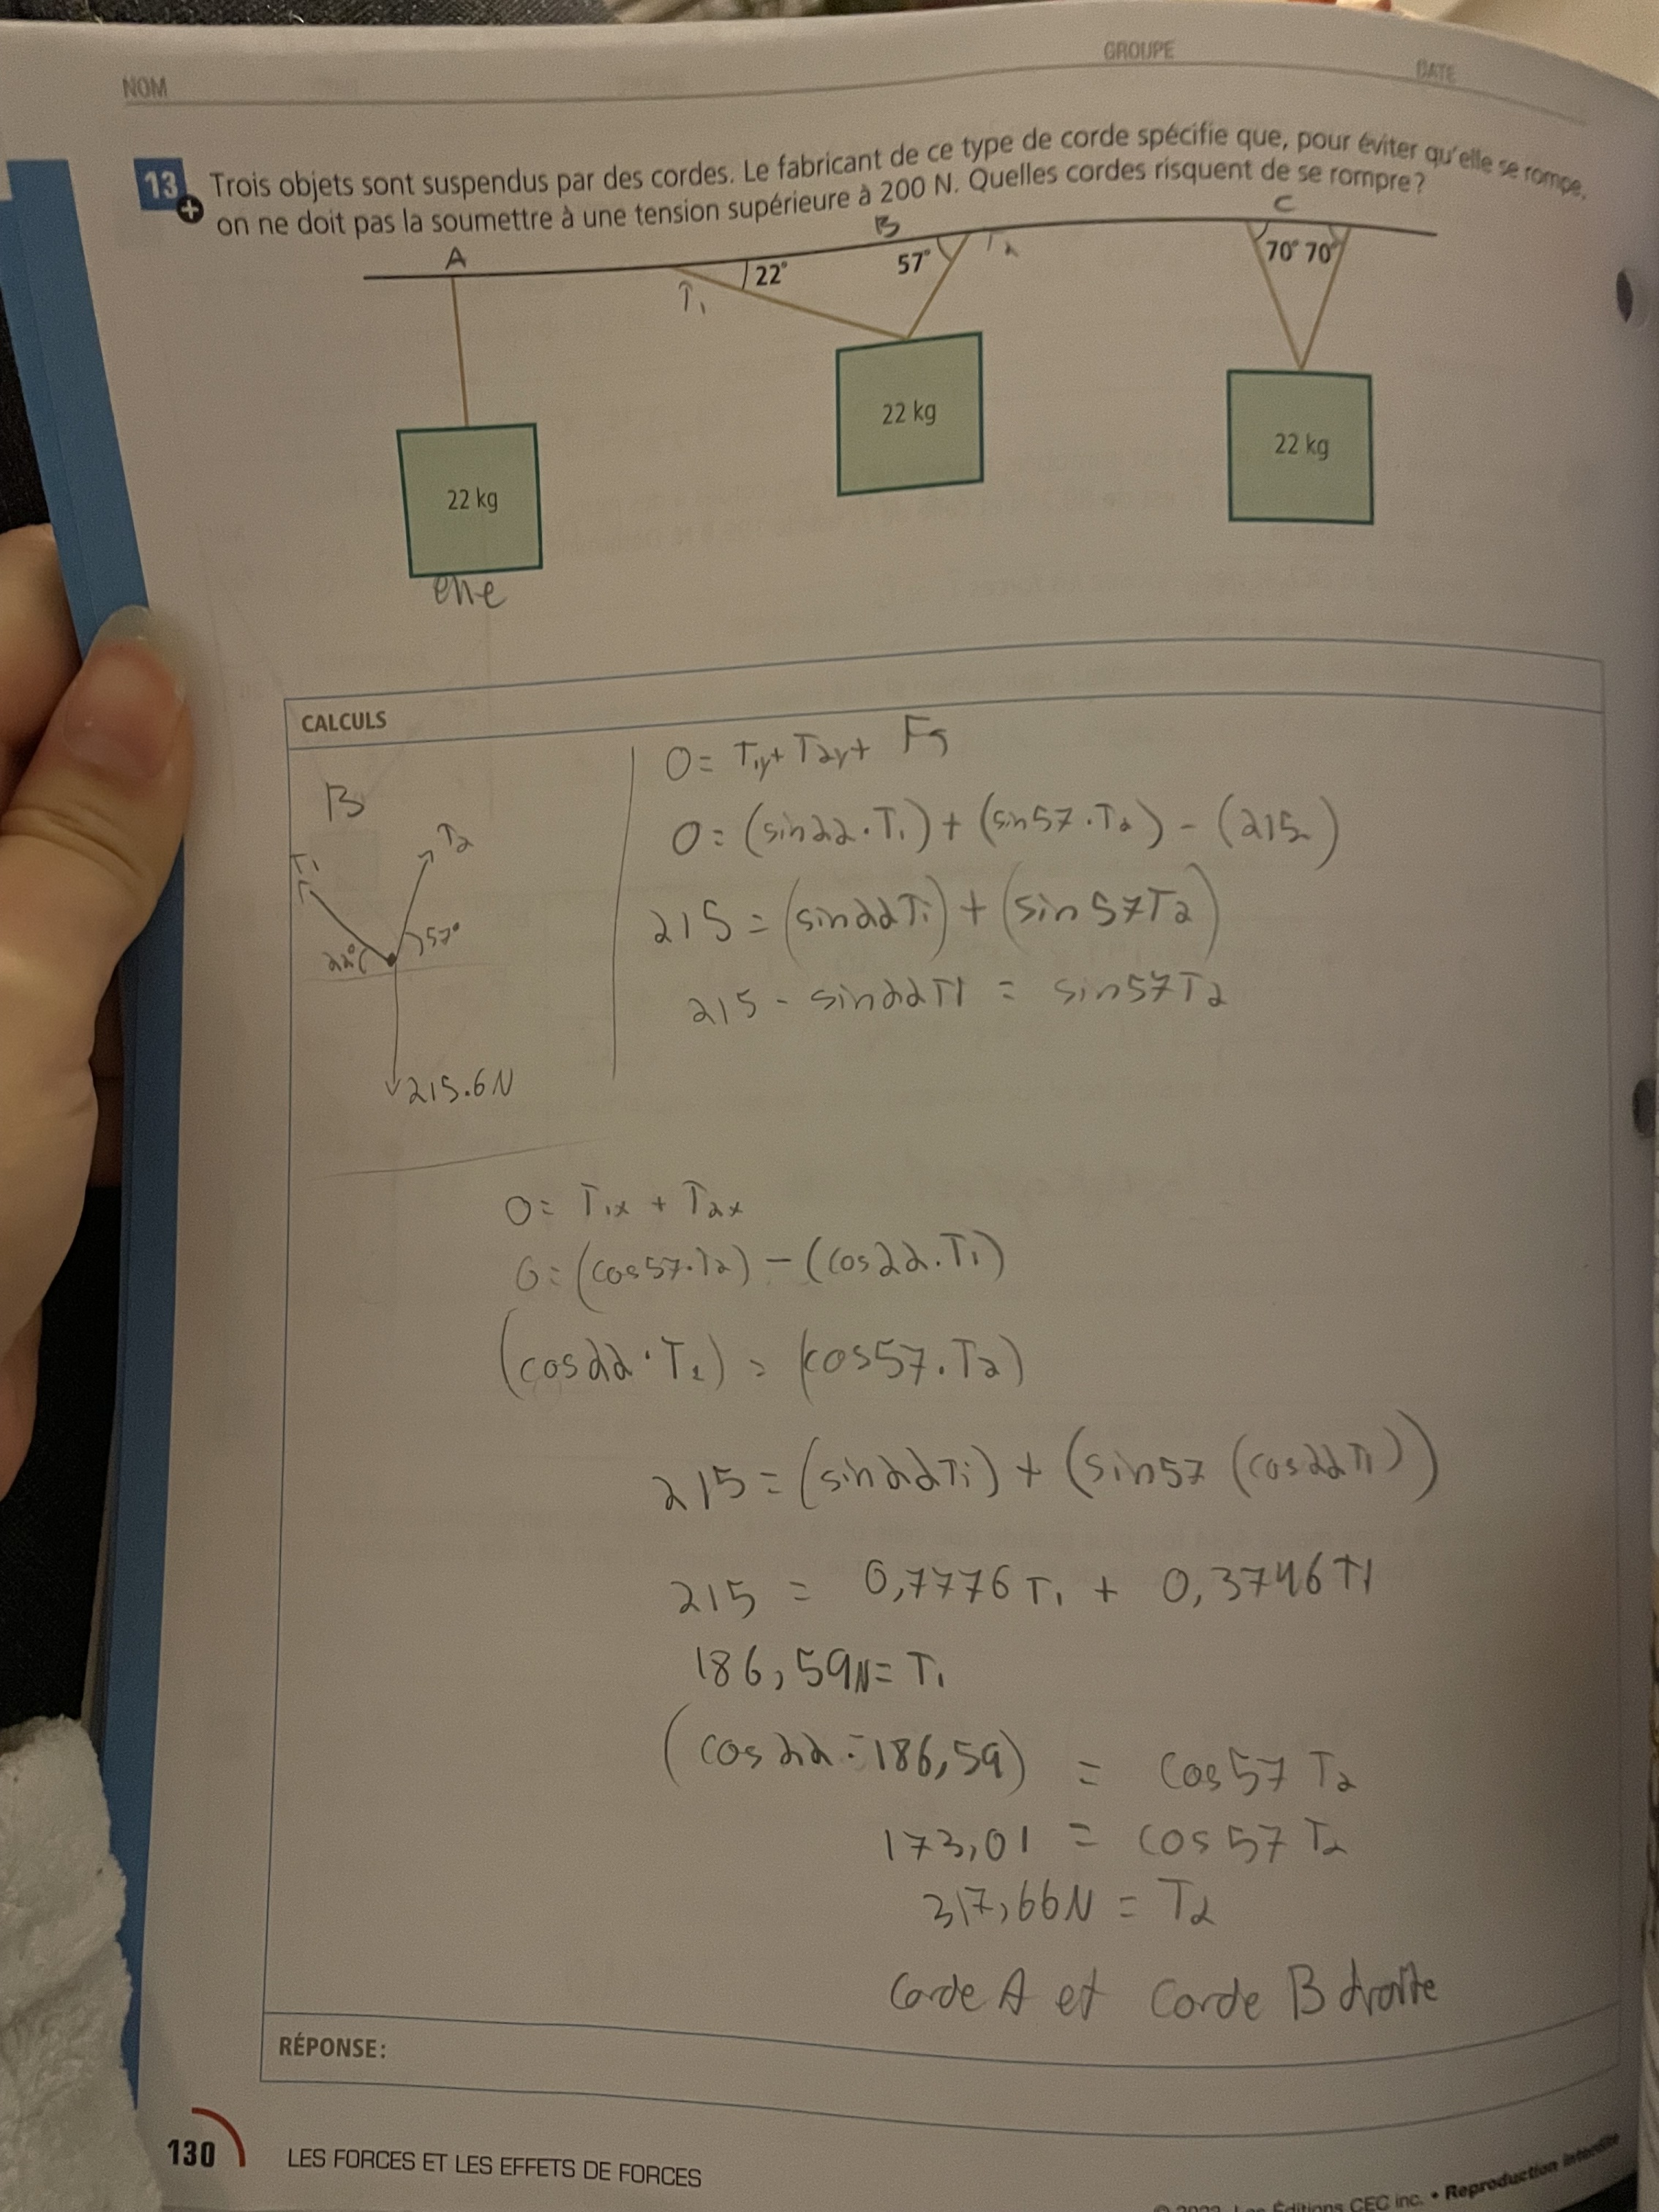 NOM
GROUPE
DATE
13 Trois objets sont suspendus par des cordes. Le fabricant de ce type de corde spécifie que, pour éviter qu'elle se rompe,
+ on ne doit pas la soumettre à une tension supérieure à 200 N. Quelles cordes risquent de se rompre?
A
B
C
T1
22°
57°
T2
70° 70°
22 kg
22 kg
22 kg
elle
CALCULS
B
T1
T2
22°
57°
215.6N
0 = T1y + T2y + Fg
0 = (sin22·T1) + (sin57·T2) - (215)
215 = (sin22T1) + (sin57T2)
215 - sin22T1 = sin57T2
0 = T1x + T2x
0 = (cos57·T2) - (cos22·T1)
(cos22·T1) = (cos57·T2)
215 = (sin22T1) + (sin57 (cos22T1))
215 = 0,7776T1 + 0,3746T1
186,59N = T1
(cos22·186,59) = cos57 T2
173,01 = cos57 T2
317,66N = T2
Corde A et corde B droite
RÉPONSE:
130 LES FORCES ET LES EFFETS DE FORCES
Les Éditions CEC inc. • Reproduction interdite